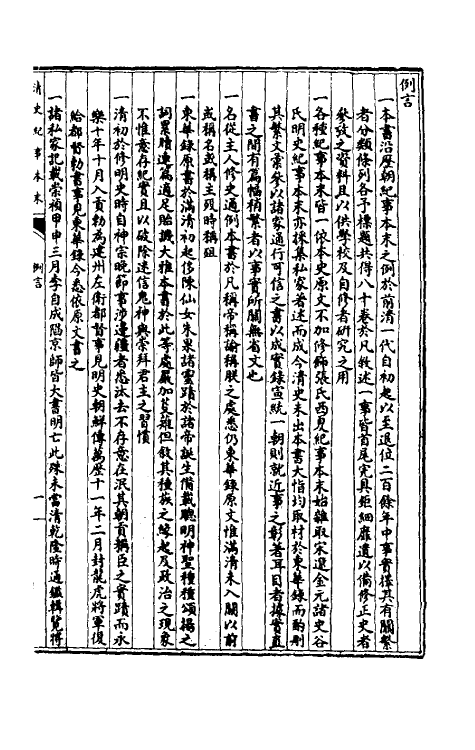 例言
一本書沿歷朝紀事本末之例於前清一代自初起以至退位二百餘年中事實擇其有關繫
者分類條列各予標題共得八十卷於凡敘述一事皆首尾完具鉅細靡遺以備修正史者
參攷之資料且以供學校及自修者研究之用
一各種紀事本末皆一依本史原文不加修飾張氏西夏紀事本末始雜取宋遼金元諸史谷
氏明史紀事本末亦採集私家著述而成今清史未出本書大恉均取材於東華錄而酌刪
其繁文彙參以諸家通行可信之書以成實錄宣統一朝則就近事之彰著耳目者據實直
書之間有篇幅稍繁者以事實所關無省文也
一名從主人修史通例本書於凡稱帝稱諭稱朕之處悉仍東華錄原文惟滿清未入關以前
或稱名或稱主歿時稱殂
一東華錄原書於滿清初起侈陳仙女朱果諸靈蹟於諸帝誕生備載聰明神聖種種頌揚之
詞累牘連篇適足貽譏大雅本書於此等處嚴加芟雜但敘其種族之緣起及政治之現象
不惟意存紀實且以破除迷信鬼神與崇拜君主之習慣
一清初於修明史時自神宗晚節事涉邊疆者悉汰去不存意在泯其朝貢稱臣之實蹟而永
樂十年十月入貢勅為建州左衛都督事見明史朝鮮傳萬歷十一年二月封龍虎將軍復
給都督勅書事見東華錄今悉依原文書之
一諸私家記載崇禎甲申三月李自成陷京師皆大書明亡此殊未當清乾隆時通鑑輯覽將
清史紀事本末
例言
一